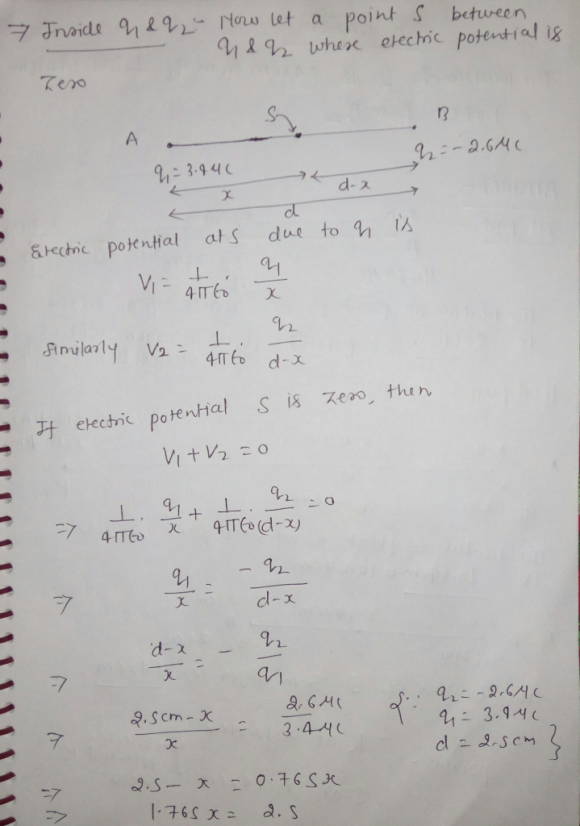 ⇒ Inside q₁ & q₂ :- Now let a point S between
q₁ & q₂ where electric potential is
zero
S
A B
q₁ = 3.4 μC q₂ = -2.6 μC
x d-x
d
Electric potential at S due to q₁ is
V₁ = 1/4πε₀ · q₁/x
Similarly V₂ = 1/4πε₀ · q₂/d-x
If electric potential S is zero, then
V₁ + V₂ = 0
⇒ 1/4πε₀ · q₁/x + 1/4πε₀ · q₂/(d-x) = 0
⇒ q₁/x = -q₂/d-x
⇒ d-x/x = - q₂/q₁
⇒ 2.5cm-x/x = 2.6μC/3.4μC {∵ q₂ = -2.6μC
q₁ = 3.4μC
d = 2.5cm }
⇒ 2.5 - x = 0.765x
⇒ 1.765x = 2.5